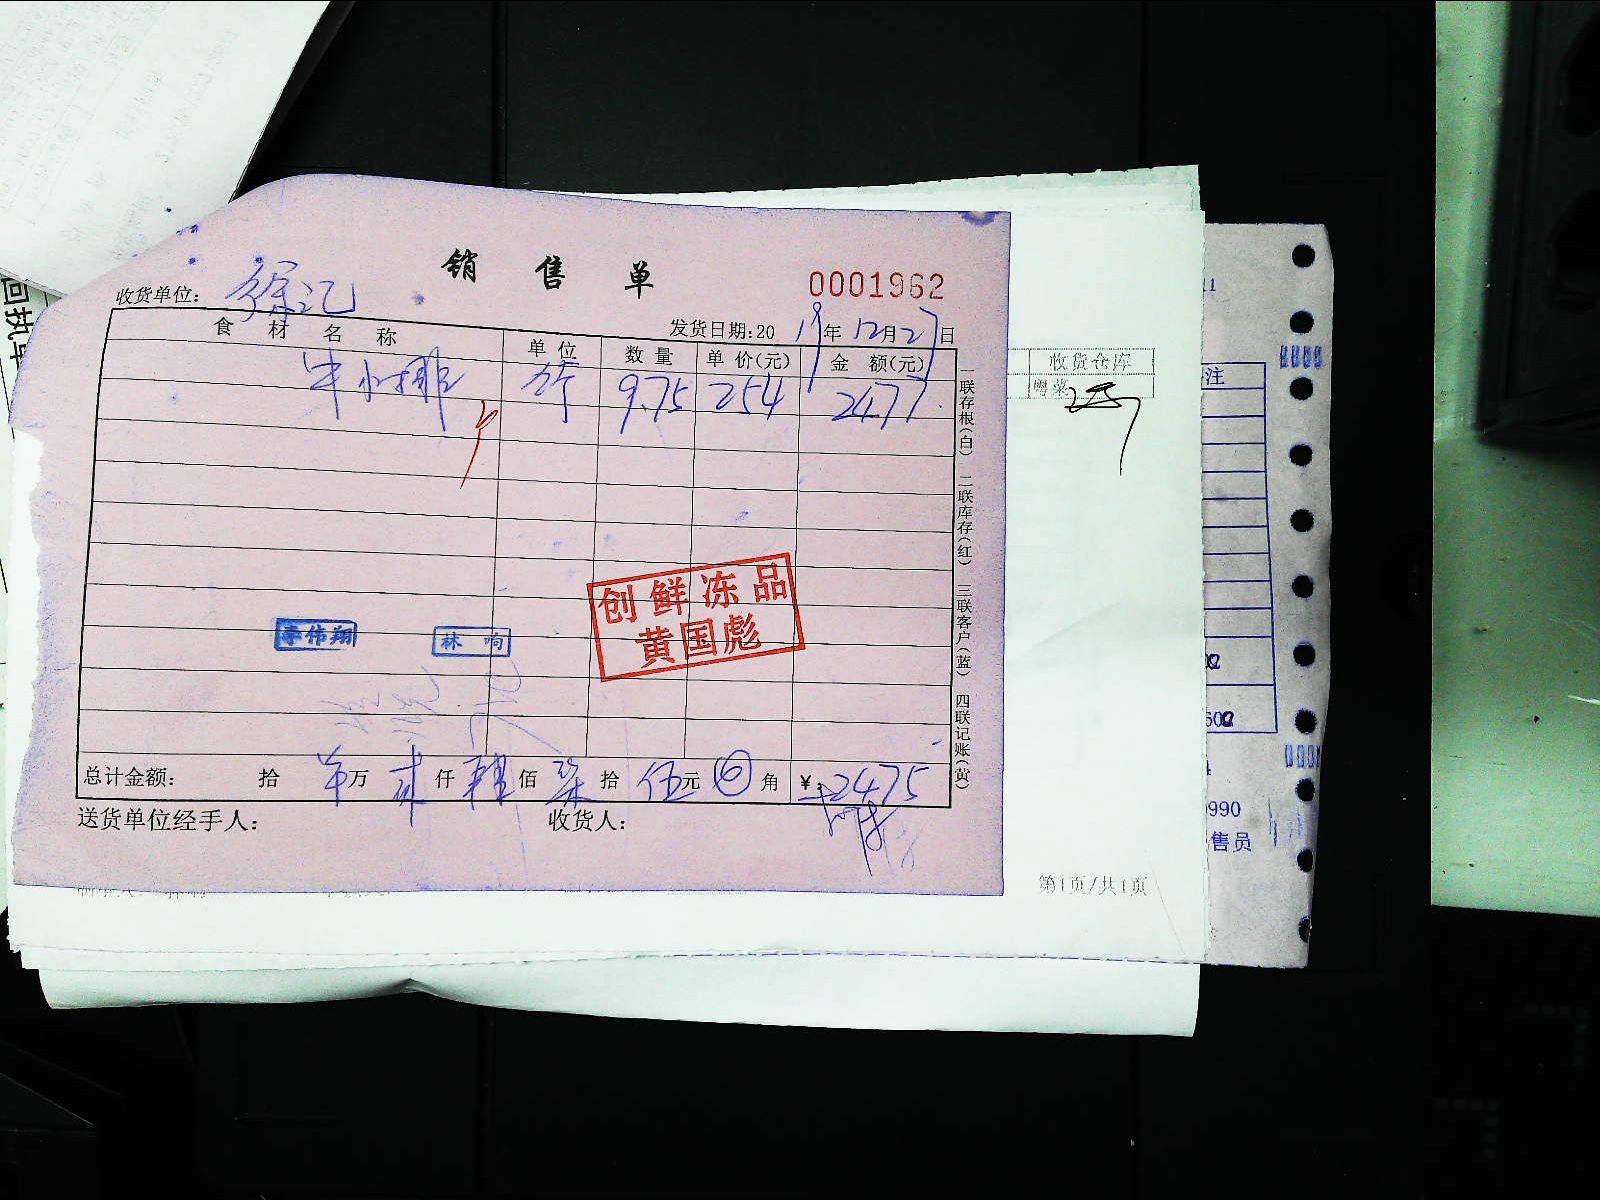 回执单
销售单
0001962
收货单位: 徐记
发货日期:2019年12月27日
食材名称 单位 数量 单价(元) 金额(元)
牛小排 斤 9.75 254 2477.
一联存根(白) 二联库存(红) 三联客户(蓝) 四联记账(黄)
创鲜冻品
黄国彪
李伟翔
林响
总计金额: 拾 万 贰仟 肆佰 柒拾 伍元 角 ¥:2475
送货单位经手人: 收货人:
收货仓库
粤菜
第1页/共1页
注
990
售员